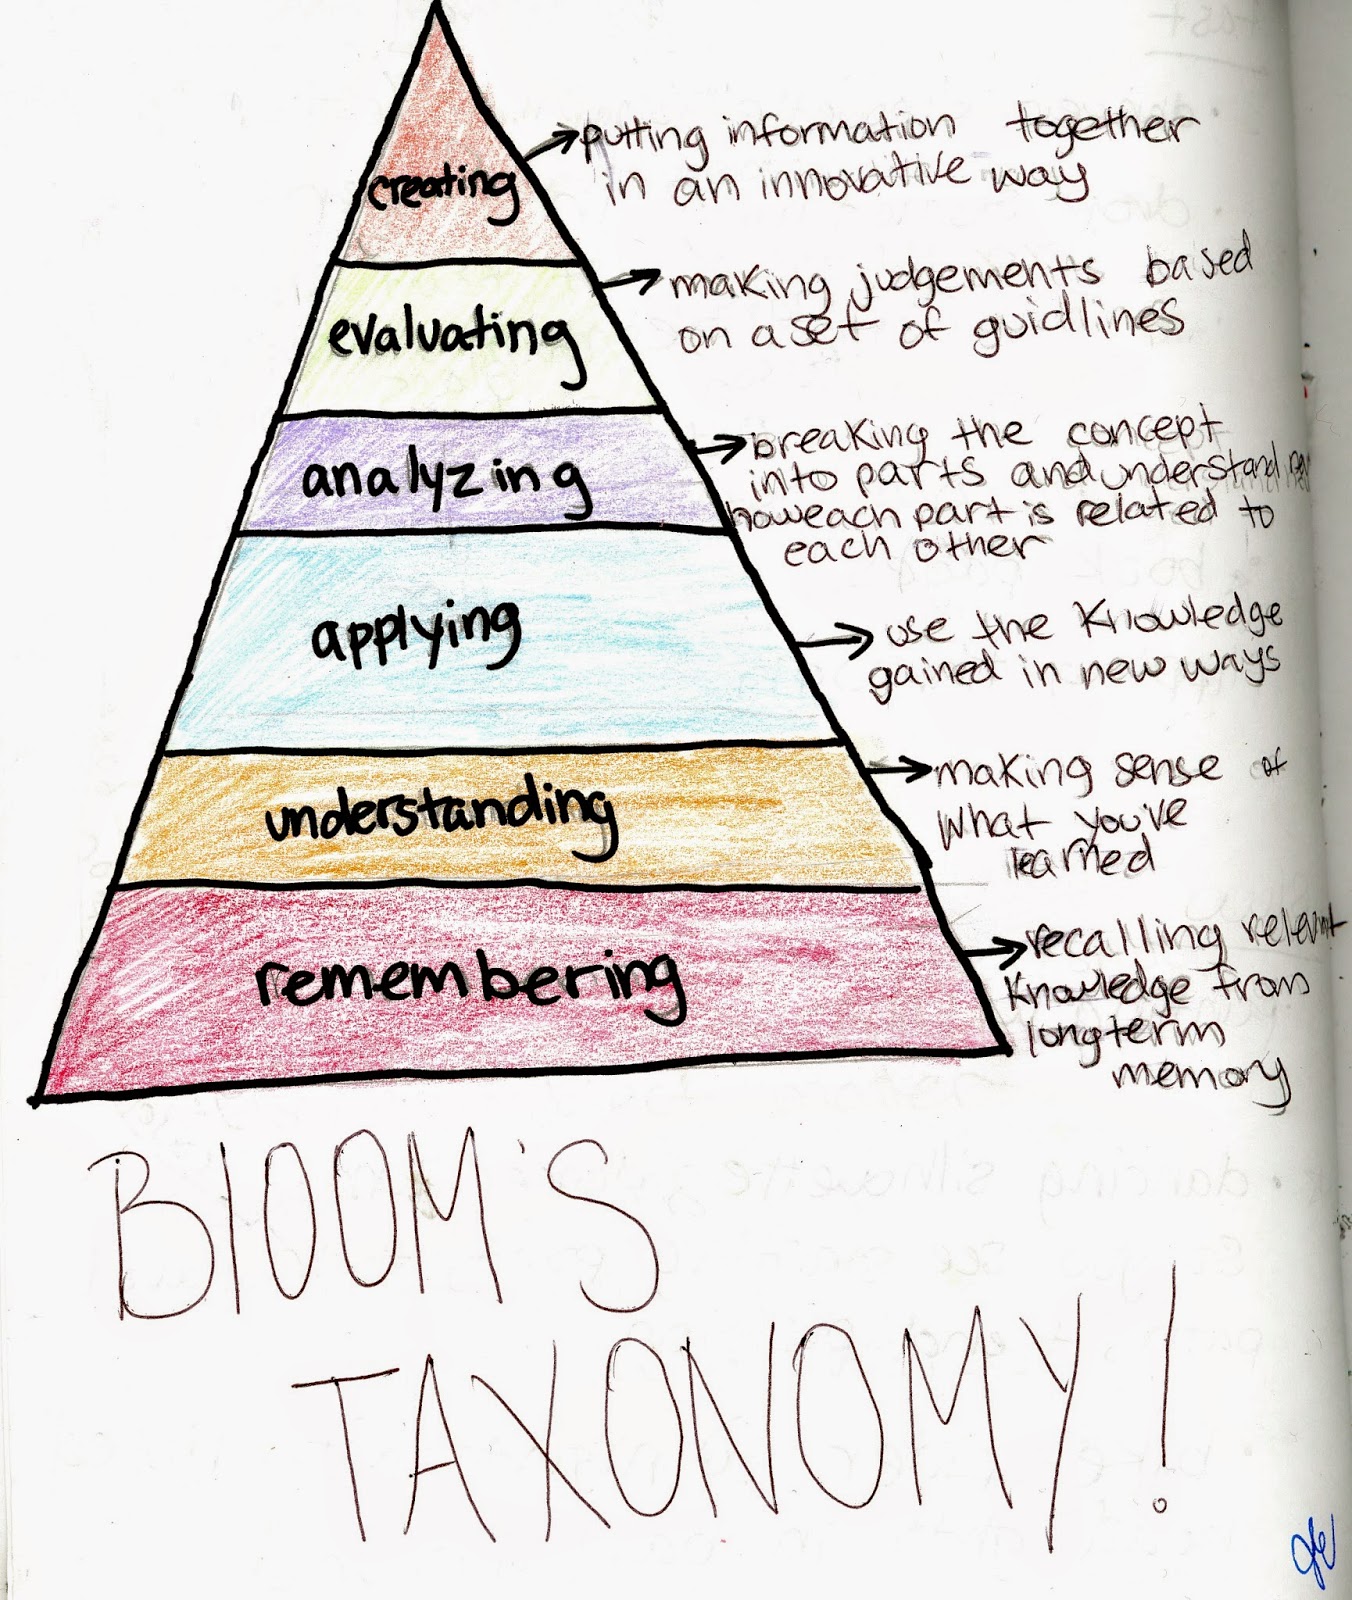 creating
putting information together
in an innovative way
evaluating
making judgements based
on a set of guidlines
analyzing
breaking the concept
into parts and understanding
how each part is related to
each other
applying
use the knowledge
gained in new ways
understanding
making sense of
what you've
learned
remembering
recalling relevant
knowledge from
longterm
memory
BLOOM'S
TAXONOMY!